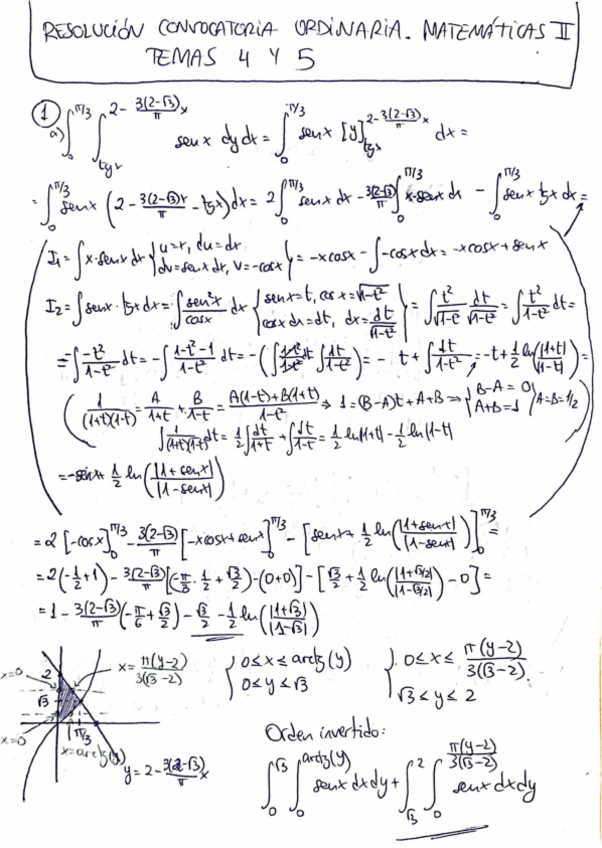 RESOLUCIÓN CONVOCATORIA ORDINARIA. MATEMÁTICAS II
TEMAS 4 Y 5
① a) ∫₀^{π/3} ∫_{tgx}^{2-3(2-√3)/π x} senx dy dx = ∫₀^{π/3} senx [y]_{tgx}^{2-3(2-√3)/π x} dx =
= ∫₀^{π/3} senx (2 - 3(2-√3)x/π - tgx) dx = 2∫₀^{π/3} senx dx - 3(2-√3)/π ∫₀^{π/3} x·senx dx - ∫₀^{π/3} senx tgx dx =
I₁ = ∫ x·senx dx { u=x, du=dx
dv=senx dx, v=-cosx } = -xcosx - ∫-cosx dx = -xcosx + senx
I₂ = ∫ senx·tgx dx = ∫ sen²x/cosx dx { senx=t, cosx=√1-t²
cosx dx=dt, dx=dt/√1-t² } = ∫ t²/√1-t² dt/√1-t² = ∫ t²/1-t² dt =
= -∫ -t²/1-t² dt = -∫ 1-t²-1/1-t² dt = -(∫ 1-t²/1-t² dt ∫ dt/1-t²) = - t + ∫ dt/1-t² = -t + 1/2 ln(|1+t|/|1-t|) =
( 1/(1+t)(1-t) = A/1+t + B/1-t = A(1-t)+B(1+t)/1-t² ⇒ 1=(B-A)t+A+B ⇒ { B-A=0
A+B=1 } A=B=1/2 )
∫ 1/(1+t)(1-t) dt = 1/2 ∫ dt/1+t + ∫ dt/1-t = 1/2 ln|1+t| - 1/2 ln|1-t|
= -senx + 1/2 ln(|1+senx|/|1-senx|)
= 2[-cosx]₀^{π/3} - 3(2-√3)/π [-xcosx+senx]₀^{π/3} - [senx + 1/2 ln(|1+senx|/|1-senx|)]₀^{π/3} =
= 2(-1/2+1) - 3(2-√3)/π [(-π/3·1/2+√3/2)-(0+0)] - [√3/2 + 1/2 ln(|1+√3/2|/|1-√3/2|) - 0] =
= 1 - 3(2-√3)/π (-π/6+√3/2) - √3/2 - 1/2 ln(|1+√3|/|1-√3|)
x=0
2
√3
x=0
π/3
x=arctg(y)
x = π(y-2)/3(√3-2)
y = 2 - 3(2-√3)/π x
{ 0≤x≤arctg(y)
0≤y≤√3
{ 0≤x≤ π(y-2)/3(√3-2)
√3≤y≤2
Orden invertido:
∫₀^{√3} ∫₀^{arctg(y)} senx dx dy + ∫_{√3}^{2} ∫₀^{π(y-2)/3(√3-2)} senx dx dy